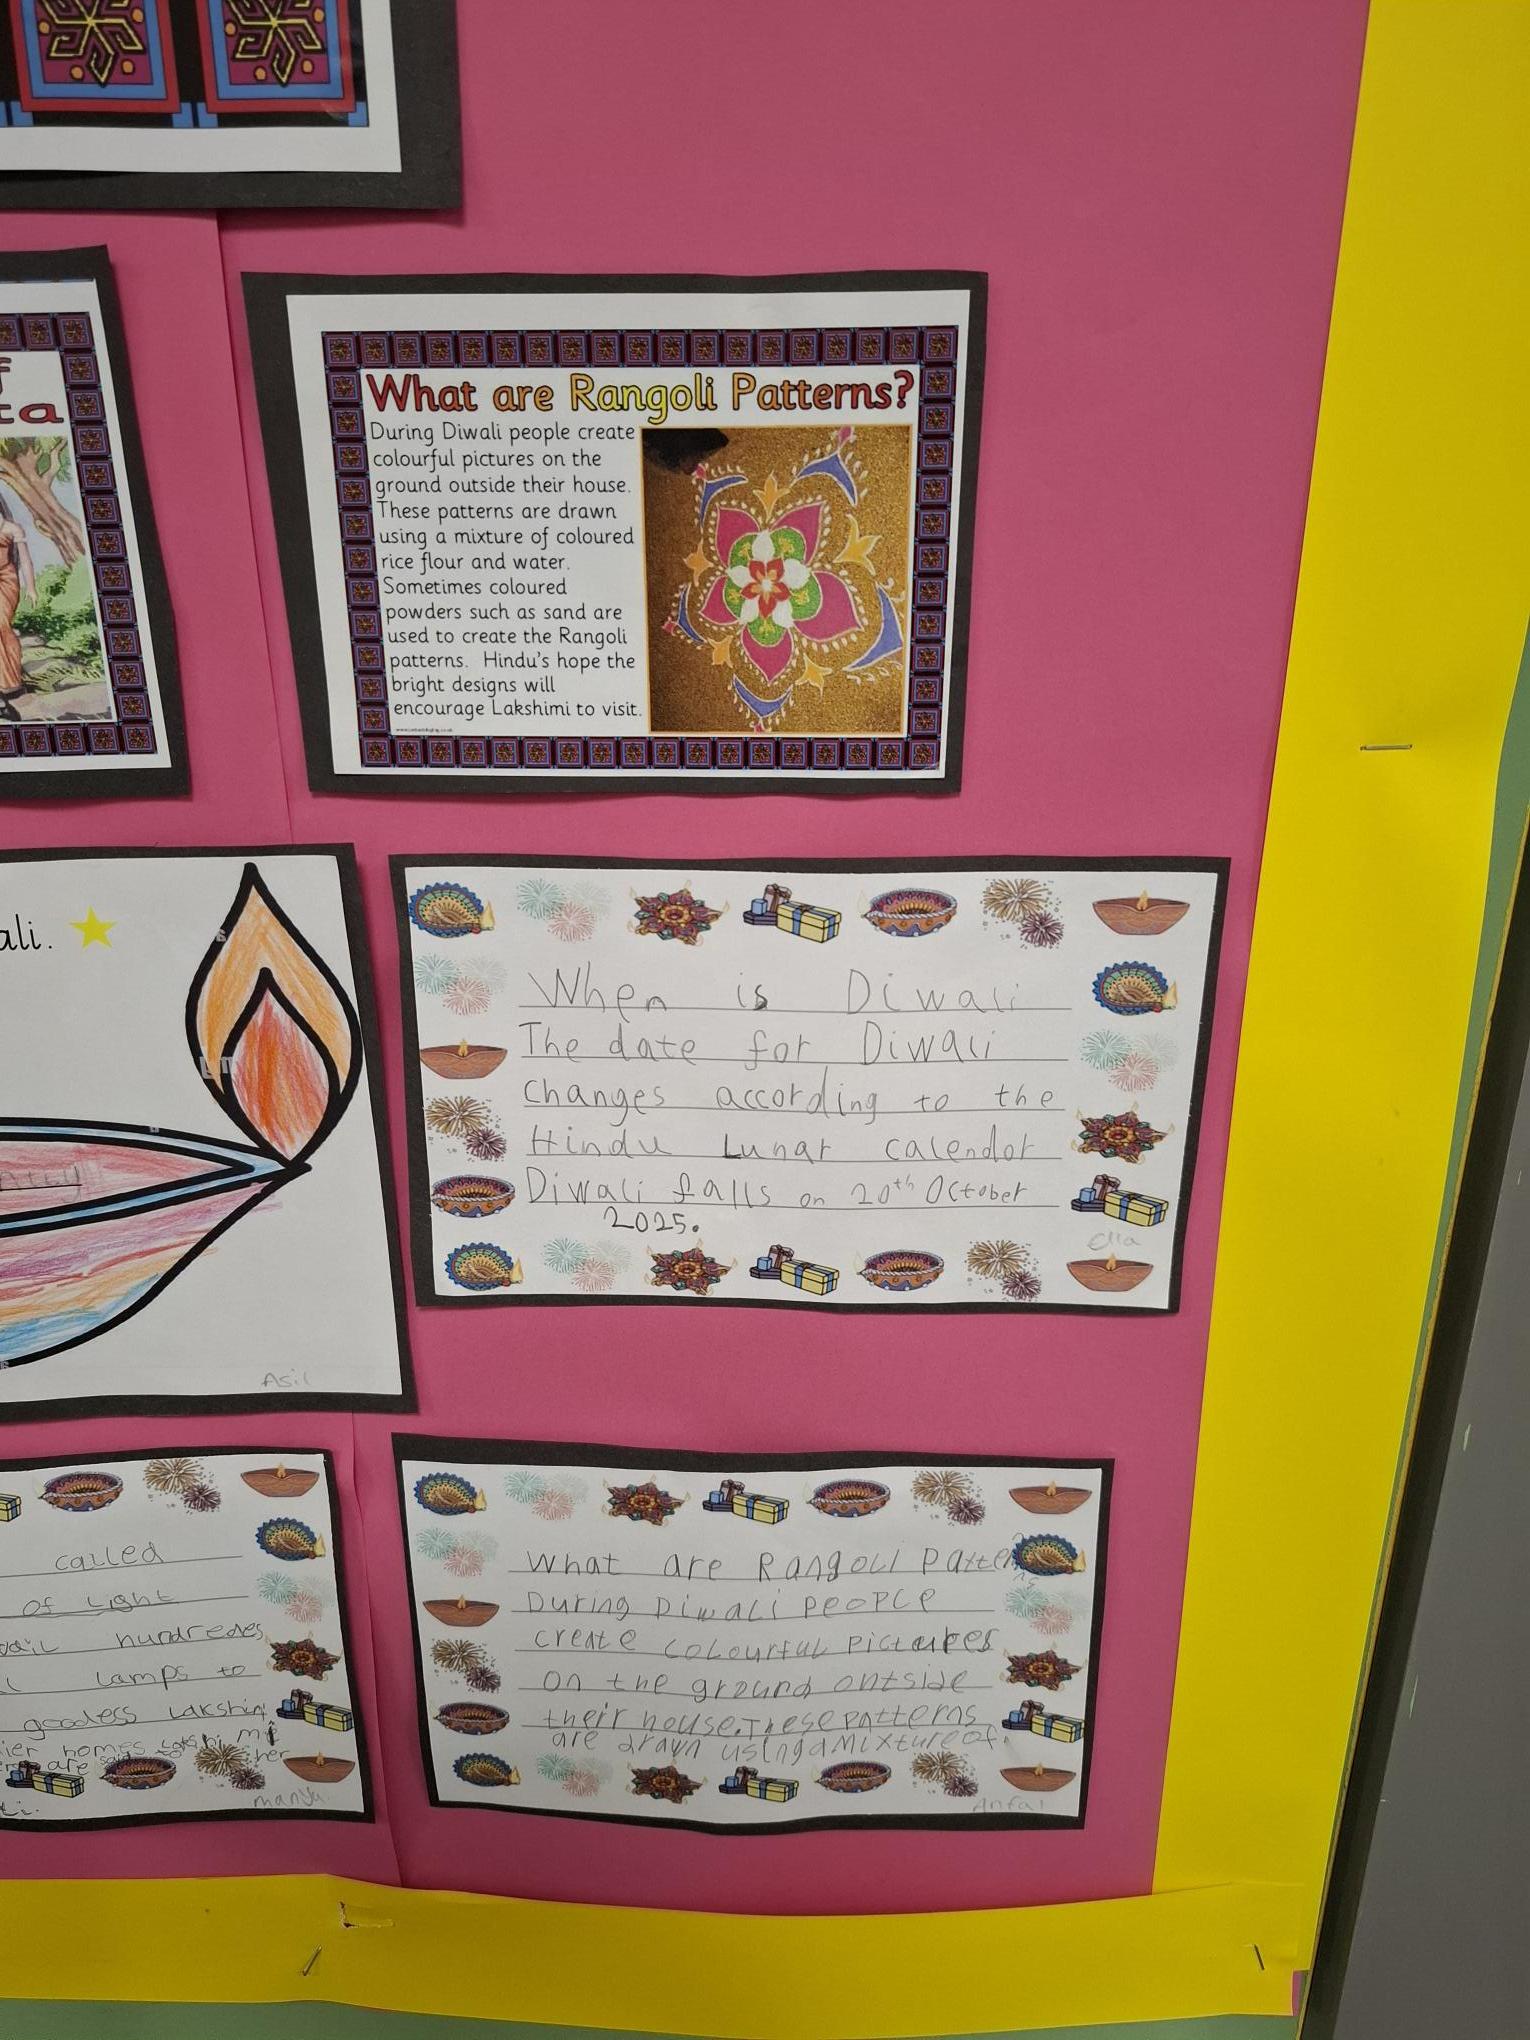 What are Rangoli Patterns?
During Diwali people create
colourful pictures on the
ground outside their house.
These patterns are drawn
using a mixture of coloured
rice flour and water.
Sometimes coloured
powders such as sand are
used to create the Rangoli
patterns. Hindu's hope the
bright designs will
encourage Lakshimi to visit.
ali.
Asil
When is Diwali
The date for Diwali
changes according to the
Hindu Lunar calendor
Diwali falls on 20th October
2025.
Ella
called
of Light
hundredes
lamps to
goodess Lakshini
homes
her
are said to
What are Rangoli Patterns
During Diwali people
create colourful pictures
on the ground outside
their house. These patterns
are drawn using a mixture of.
Anfal